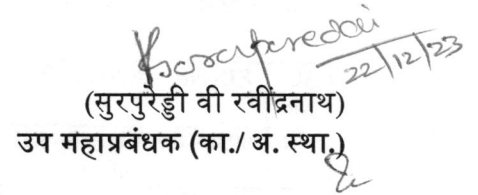 22/12/23
(सुरपुरेड्डी वी रवींद्रनाथ)
उप महाप्रबंधक (का./ अ. स्था.)